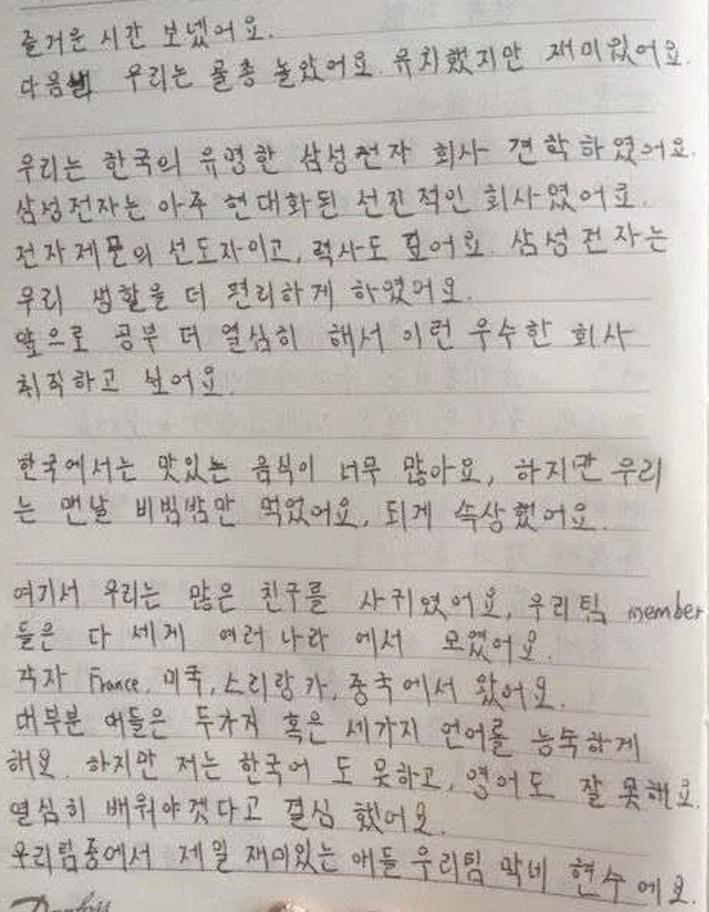 즐거운 시간 보냈어요.
다음 우리는 줄층 놀았어요. 유치했지만 재미있어요.
우리는 한국의 유명한 삼성전자 회사 견학하였어요.
삼성전자는 아주 현대화된 선진적인 회사였어요.
전자제품의 선도자이고, 력사도 있어요. 삼성전자는
우리 생활을 더 편리하게 하였어요.
앞으로 공부 더 열심히 해서 이런 우수한 회사
취직하고 싶어요.
한국에서는 맛있는 음식이 너무 많아요, 하지만 우리
는 맨날 비빔밥만 먹었어요, 되게 속상했어요.
여기서 우리는 많은 친구를 사귀였어요, 우리팀 member
들은 다 세계 여러나라에서 모였어요.
각자 France, 미국, 스리랑카, 중국에서 왔어요.
대부분 애들은 두가지 혹은 세가지 언어를 능숙하게
해요. 하지만 저는 한국어 도 못하고, 영어도 잘 못해요.
열심히 배워야겠다고 결심 했어요.
우리팀중에서 제일 재미있는 애들 우리팀 막네 현수에요.
Danfoss